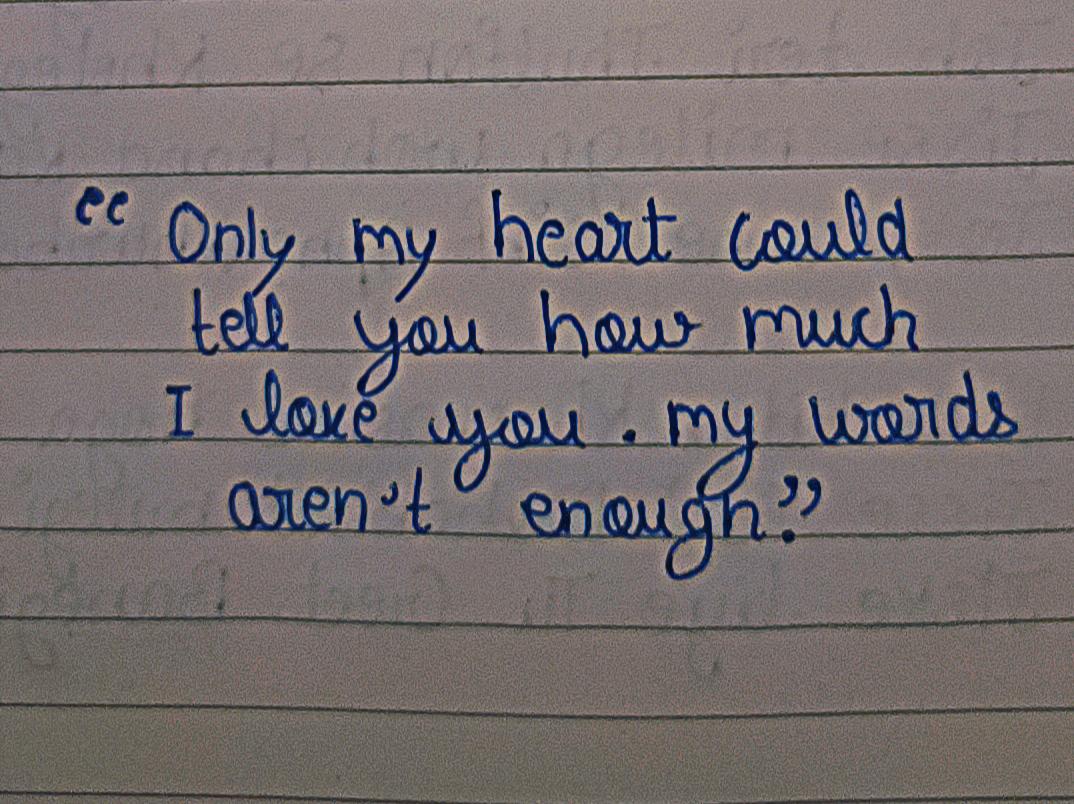 “Only my heart could
tell you how much
I love you. my words
aren't enough.”